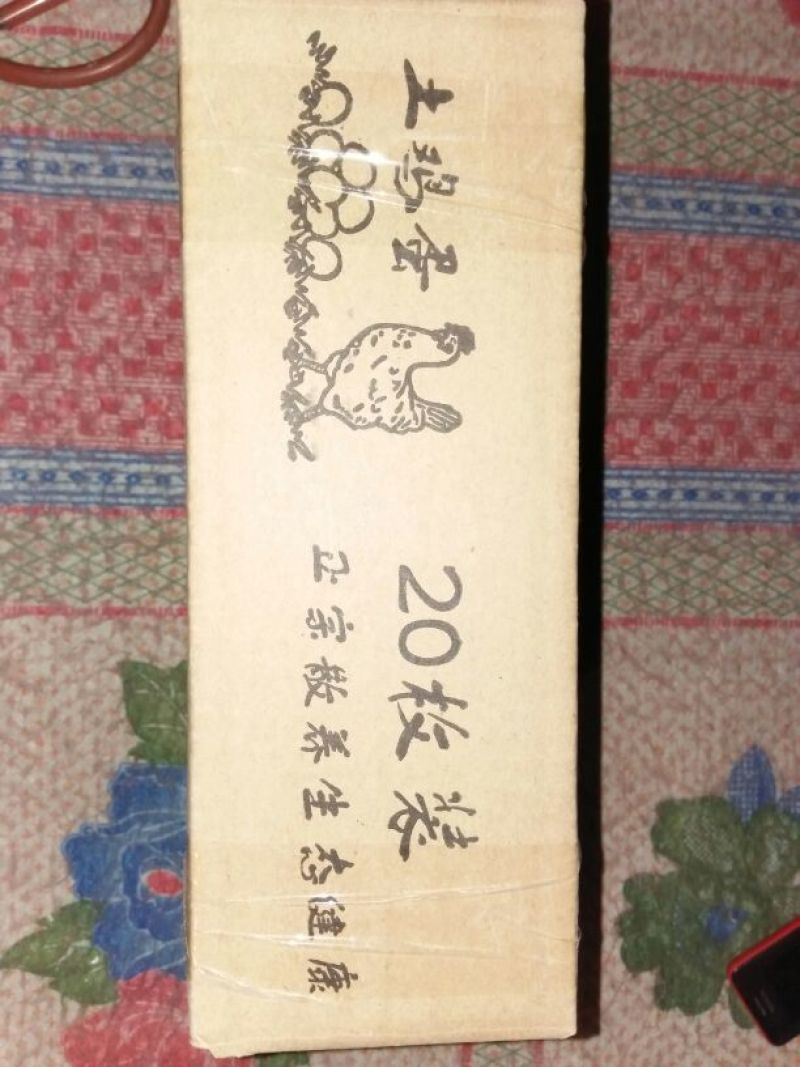 土鸡蛋
20枚装
正宗散养生态健康